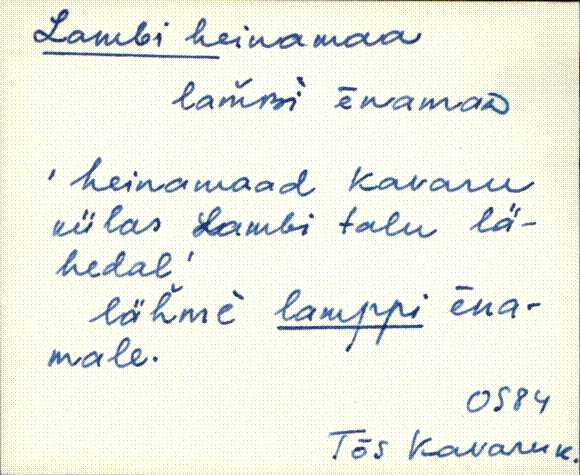 Lambi heinamaa
lam̆ʙi ēnamaᴅ
'heinamaad Kavaru
külas Lambi talu lä-
hedal'
läh̆mè lamppi ēna-
male.
OS84
Tõs Kavaru k.